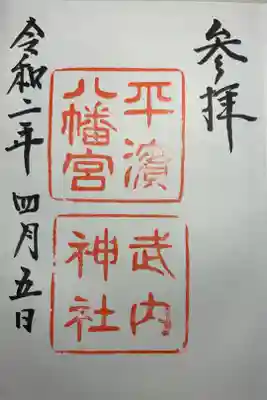 参拝
平濱
八幡宮
武内
神社
令和二年 四月五日